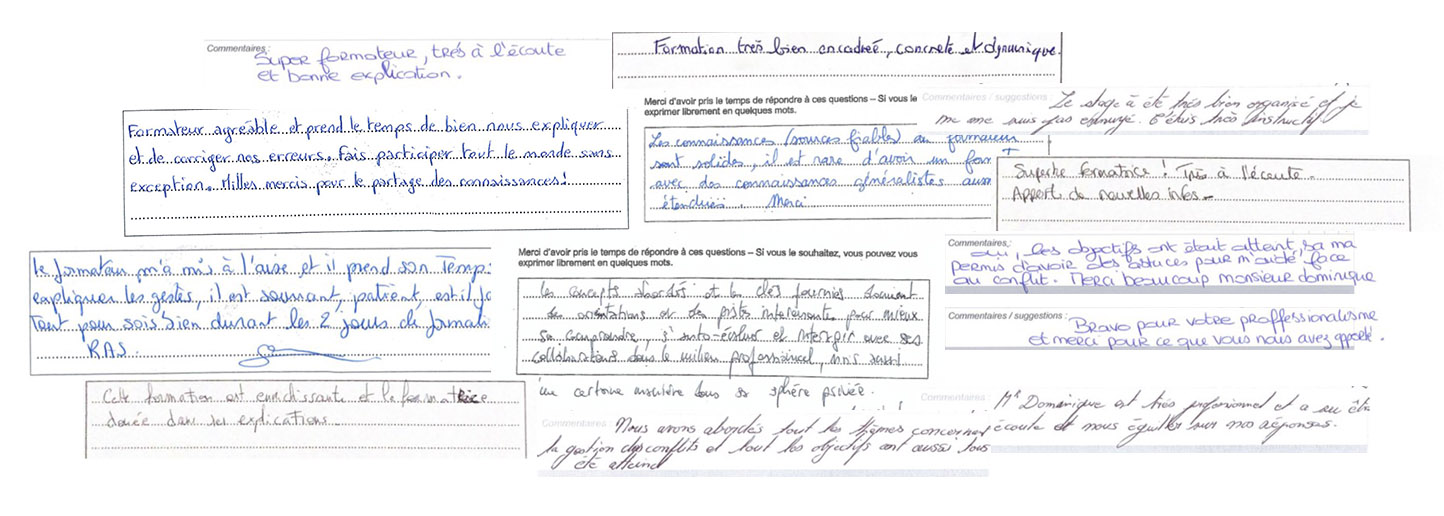 Commentaires :
Super formateur, très à l'écoute
et bonne explication.
Formation très bien encadrée, concrète et dynamique.
Formateur agréable et prend le temps de bien nous expliquer
et de corriger nos erreurs. Fais participer tout le monde sans
exception. Milles mercis pour le partage des connaissances!
Merci d'avoir pris le temps de répondre à ces questions – Si vous le
exprimer librement en quelques mots.
Les connaissances (sources fiables) du formateur
sont solides, il est rare d'avoir un for
avec des connaissances généralistes auss
étendues. Merci
Commentaires / suggestions :
Le stage a été très bien organisé et je
me suis pas ennuyé. C'étais très instructif
Superbe formatrice ! Très à l'écoute.
Apport de nouvelles infos.
le formateur m'a mis à l'aise, et il prend son Temps
expliquer les gestes, il est souriant, patient, et il
Tout pour sois bien durant les 2 jours de format
RAS.
Merci d'avoir pris le temps de répondre à ces questions – Si vous le souhaitez, vous pouvez vous
exprimer librement en quelques mots.
Les concepts abordés et les clés fournies donnent
des orientations et des pistes intéressantes pour mieux
se comprendre, s'auto-évaluer et interagir avec ses
collaborateurs dans le milieu professionnel, mais aussi
d'une certaine manière dans sa sphère privée.
Commentaires :
oui, les objectifs ont étaut atteint, sa ma
permis d'avoir des astuces pour m'aidé face
au conflit. Merci beaucoup monsieur dominique
Commentaires / suggestions :
Bravo pour votre proffessionalisme
et merci pour ce que vous nous avez apporté.
Cette formation est enrichissante et la formatrice
douée dans ses explications.
Commentaires :
Nous avons abordés tout les thèmes concernant
la gestion des conflits et tout les objectifs ont aussi tous
été atteind
Commentaires
Mr Dominique est très professionnel et a su être
écoute et nous éguiller sur nos réponses.